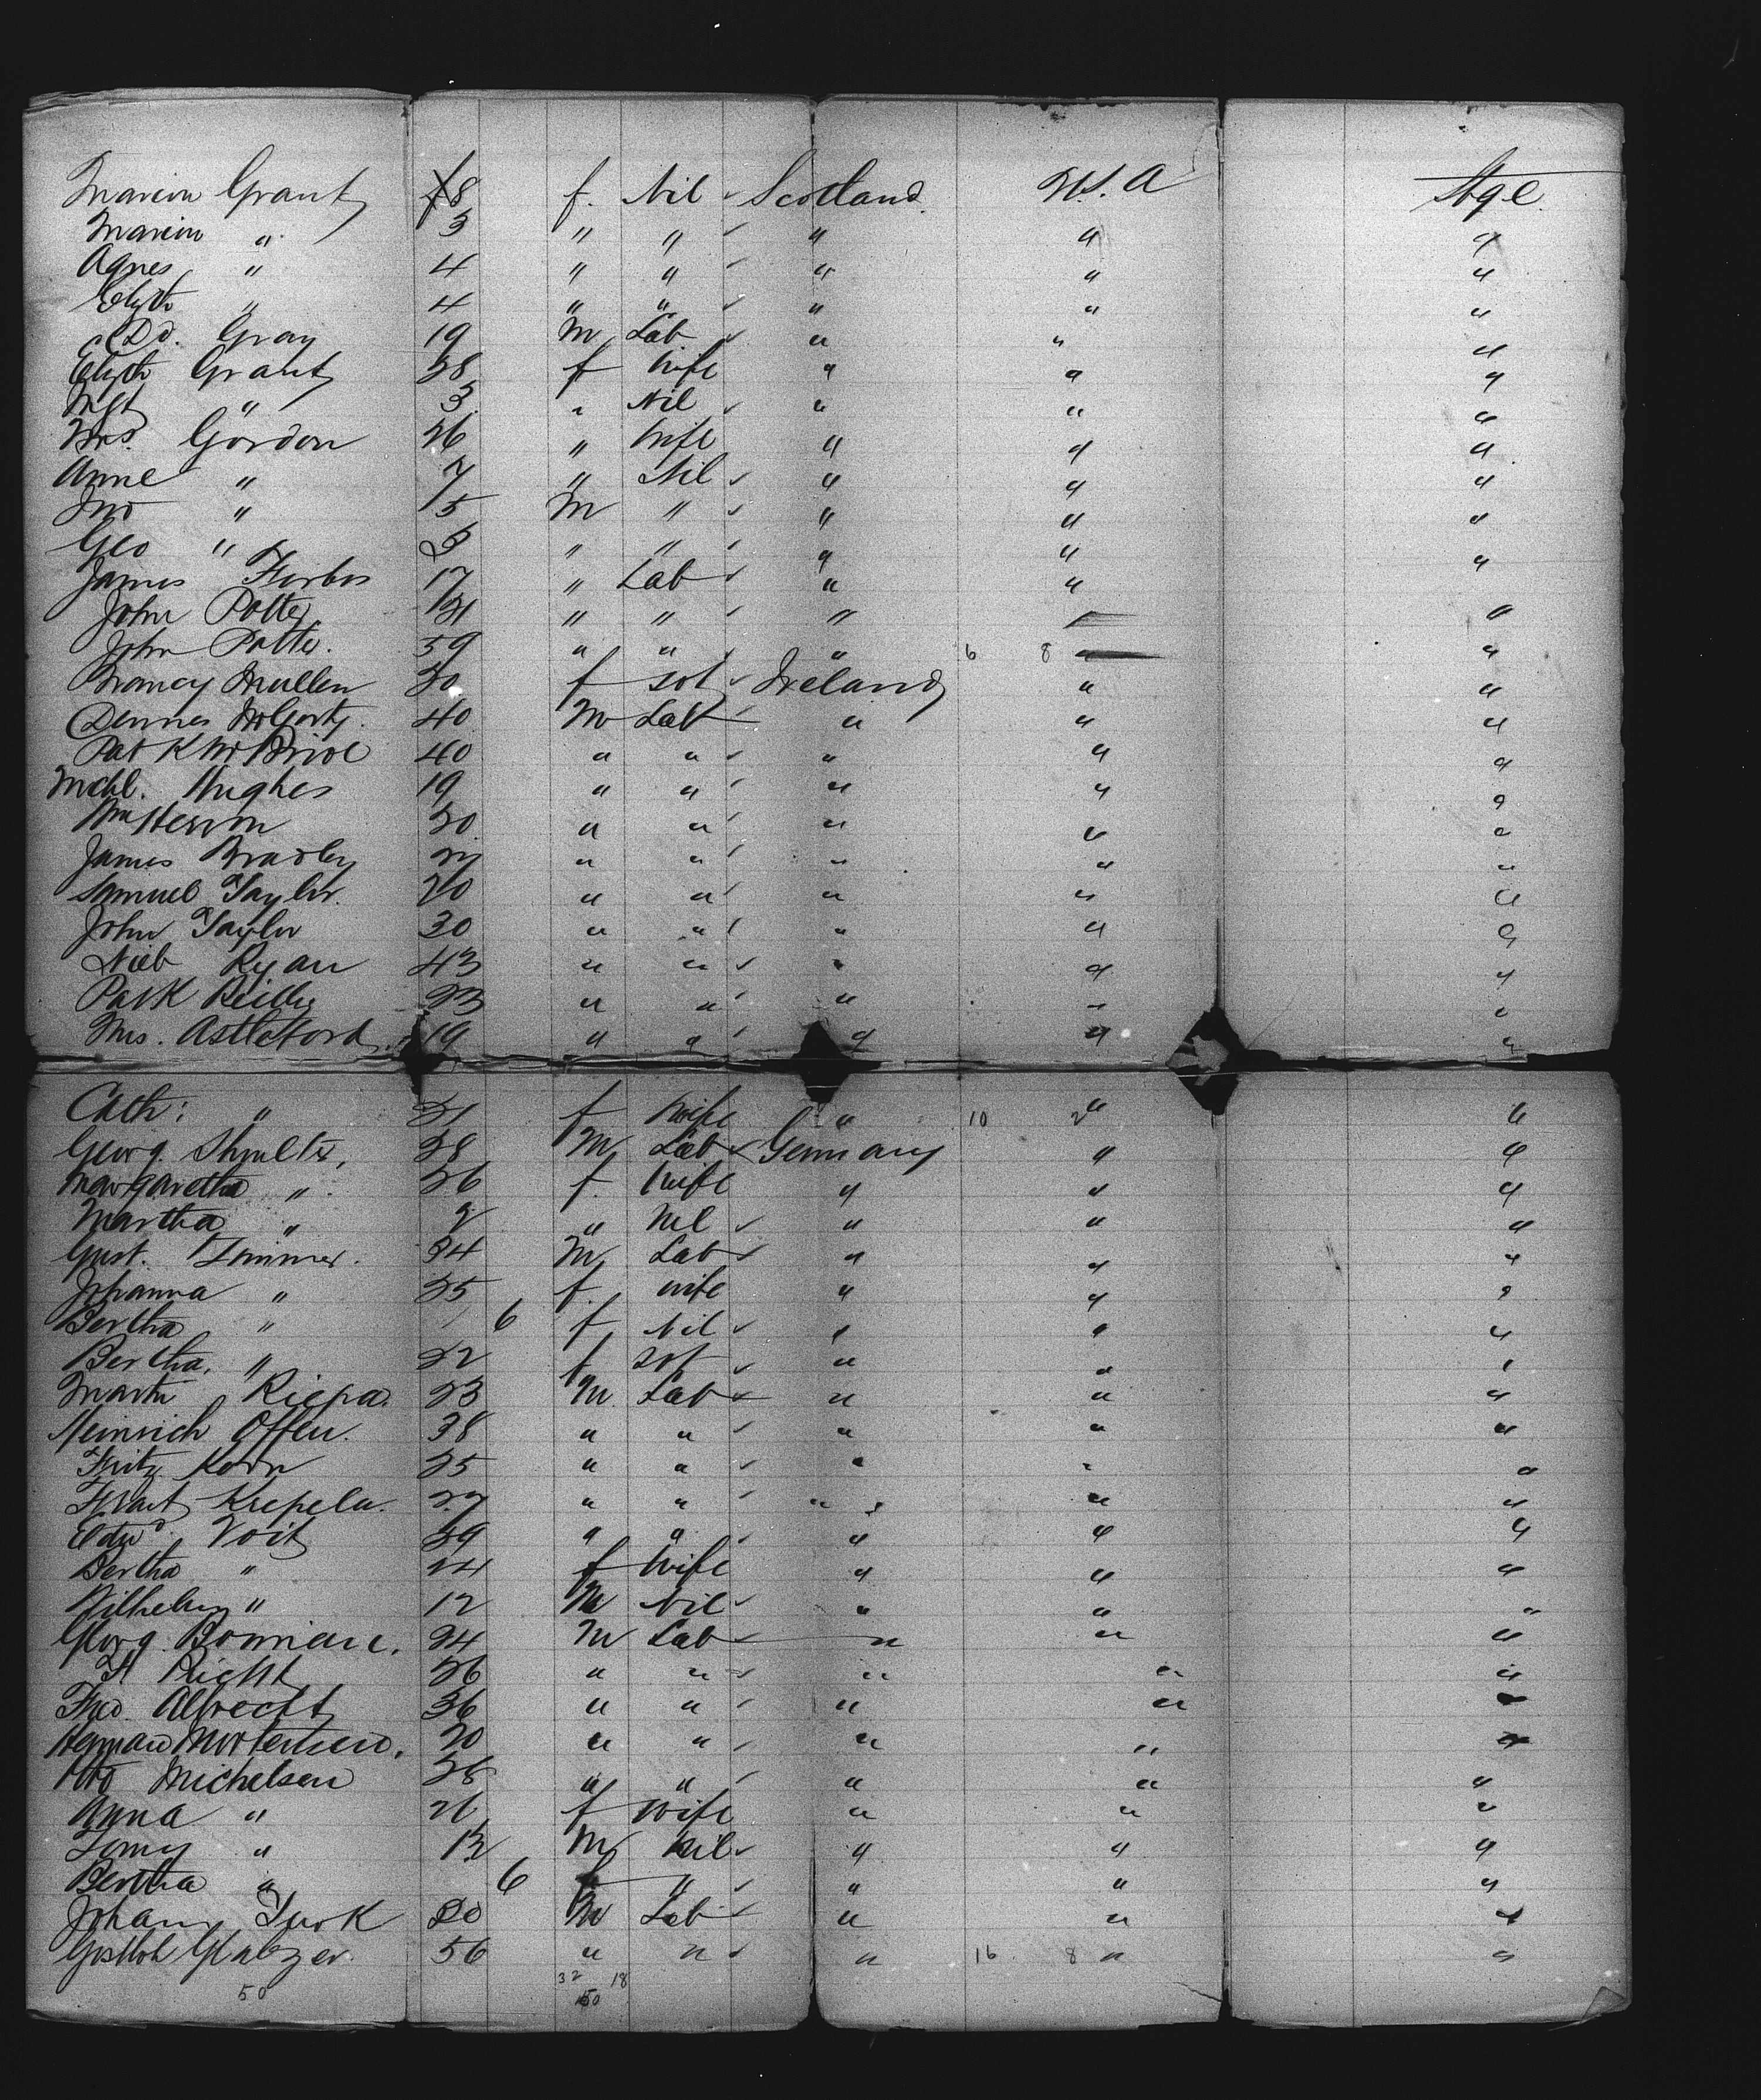 Marion Grant 8 f. Nil Scotland U.S.A Stge
Marion " 3 " " " " "
Agnes " 4 " " " " "
Elizth " 4 " " " " "
Dd. Gray 19 M Lab " " "
Elizth Grant 38 f Wife " " "
Mgt " 3 " Nil " " "
Mrs. Gordon 26 " Wife " " "
Anne " 7 " Nil " " "
Jno " 5 M " " " "
Geo " 3 " " " " "
James Forbes 17 " Lab " " "
John Potter 31 " " " "
John Potter. 59 " " " 6 8 " "
Nancy Mullen 30 f Spt Ireland " "
Dennes McGarty. 40 M Lab " " "
Patk McBride 40 " " " " "
Mchl. Hughes 19 " " " " "
Wm Herron 30 " " " " "
James Bradley 27 " " " " "
Samuel Taylor. 20 " " " " "
John Taylor 30 " " " " "
Ryan 43 " " " " "
Patk Reilly 23 " " " " "
Astleford 19 " " " " "
Cath: " 21 f Wife " 10 2 " "
Georg. Shmultz, 38 M Lab Germany " "
Margaretha " 36 f. Wife " " "
Martha " 9 " Nil " " "
Gust. Zimmer. 34 M Lab " " "
Johanna " 35 f. wife " " "
Bertha " 6 f Nil " " "
Bertha, " 22 f Spt " " "
Martin Riepa. 23 M Lab " " "
Heinrich Offen. 38 " " " " "
Fritz Korn 25 " " " " "
Krepela. 27 " " " " "
Edwd. Voit 39 " " " " "
Bertha " 24 f Wife " " "
Wilhelm " 12 M Nil " " "
Georg. 24 M Lab " " "
36 " " " " "
Theo. Albrecht 36 " " " " "
Herman Mortensen. 20 " " " " "
Otto Michelsen 28 " " " " "
Anna " 26 f Wife " " "
" M Nil " " "
Bertha " 6 f " " " "
Johann Turk 20 M Lab " " "
Glatzer. 56 " " " 16 8 " "
50 32 18
50